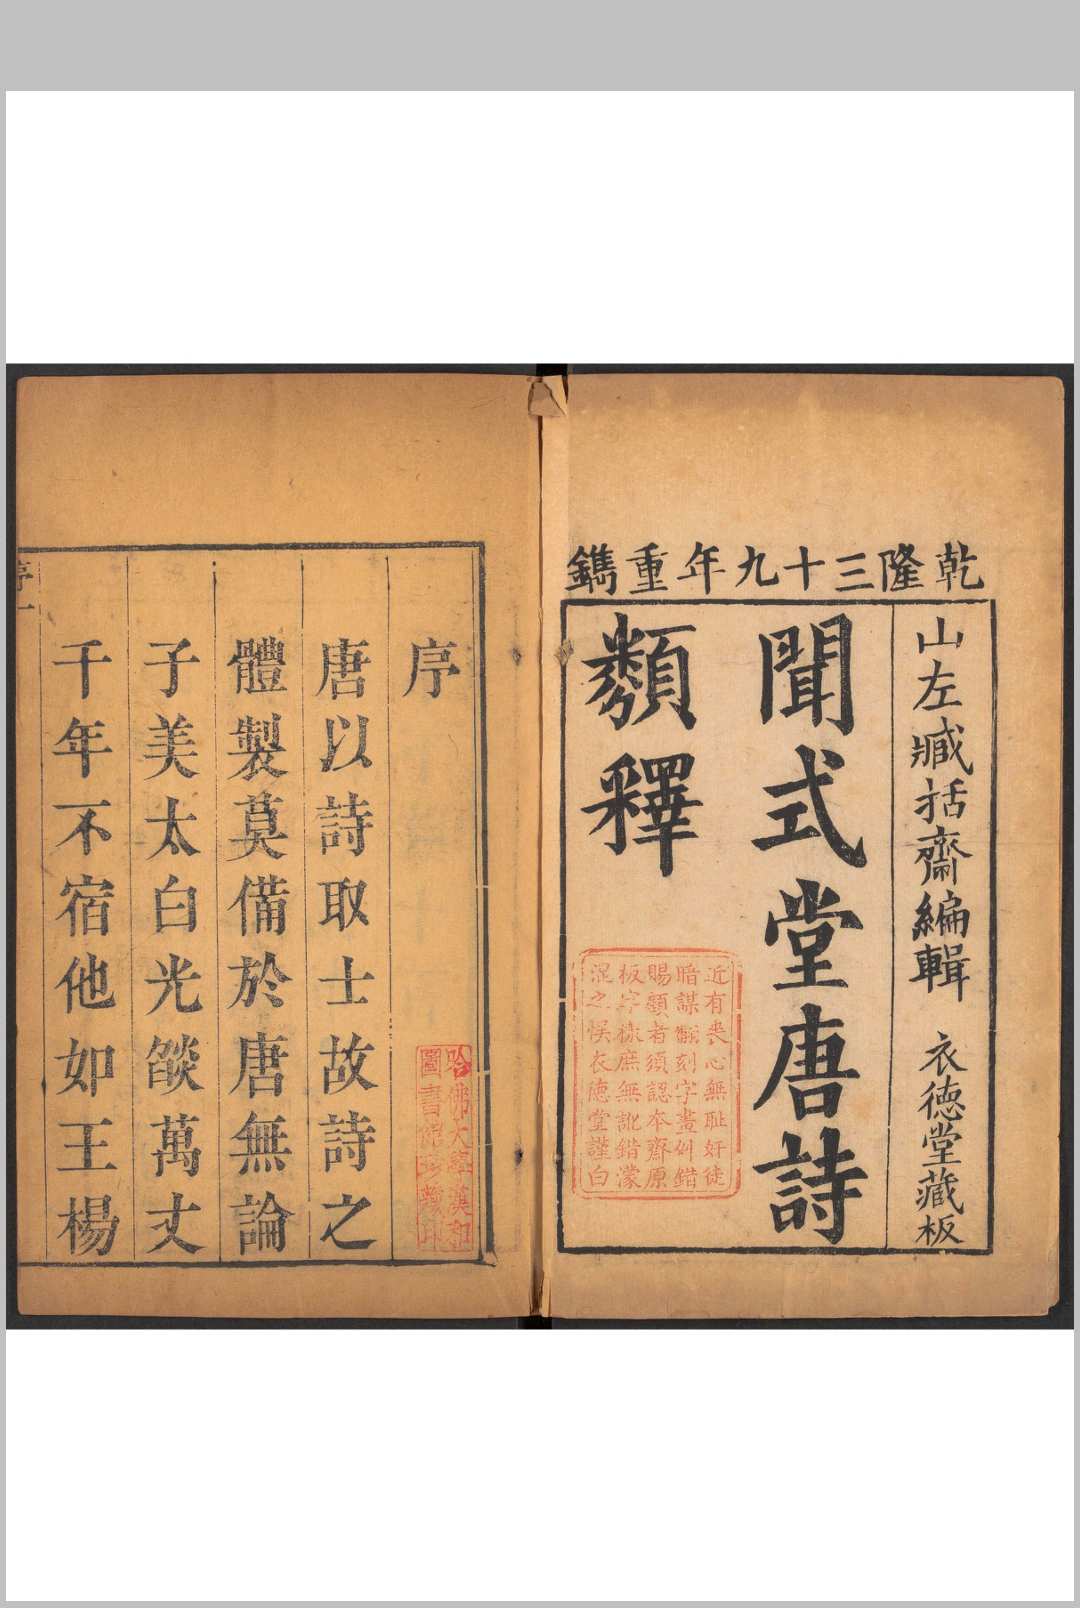 乾隆三十九年重鐫
山左臧括齋編輯　衣德堂藏板
聞式堂唐詩
類釋
近有喪心無耻奸徒
暗謀翻刻字畫舛錯
賜顧者須認本齋原
板字樣庶無訛錯濛
混之悞衣德堂謹白
序
哈佛大學漢和
圖書館珍藏印
唐以詩取士故詩之
體製莫備於唐無論
子美太白光燄萬丈
千年不宿他如王楊
序一